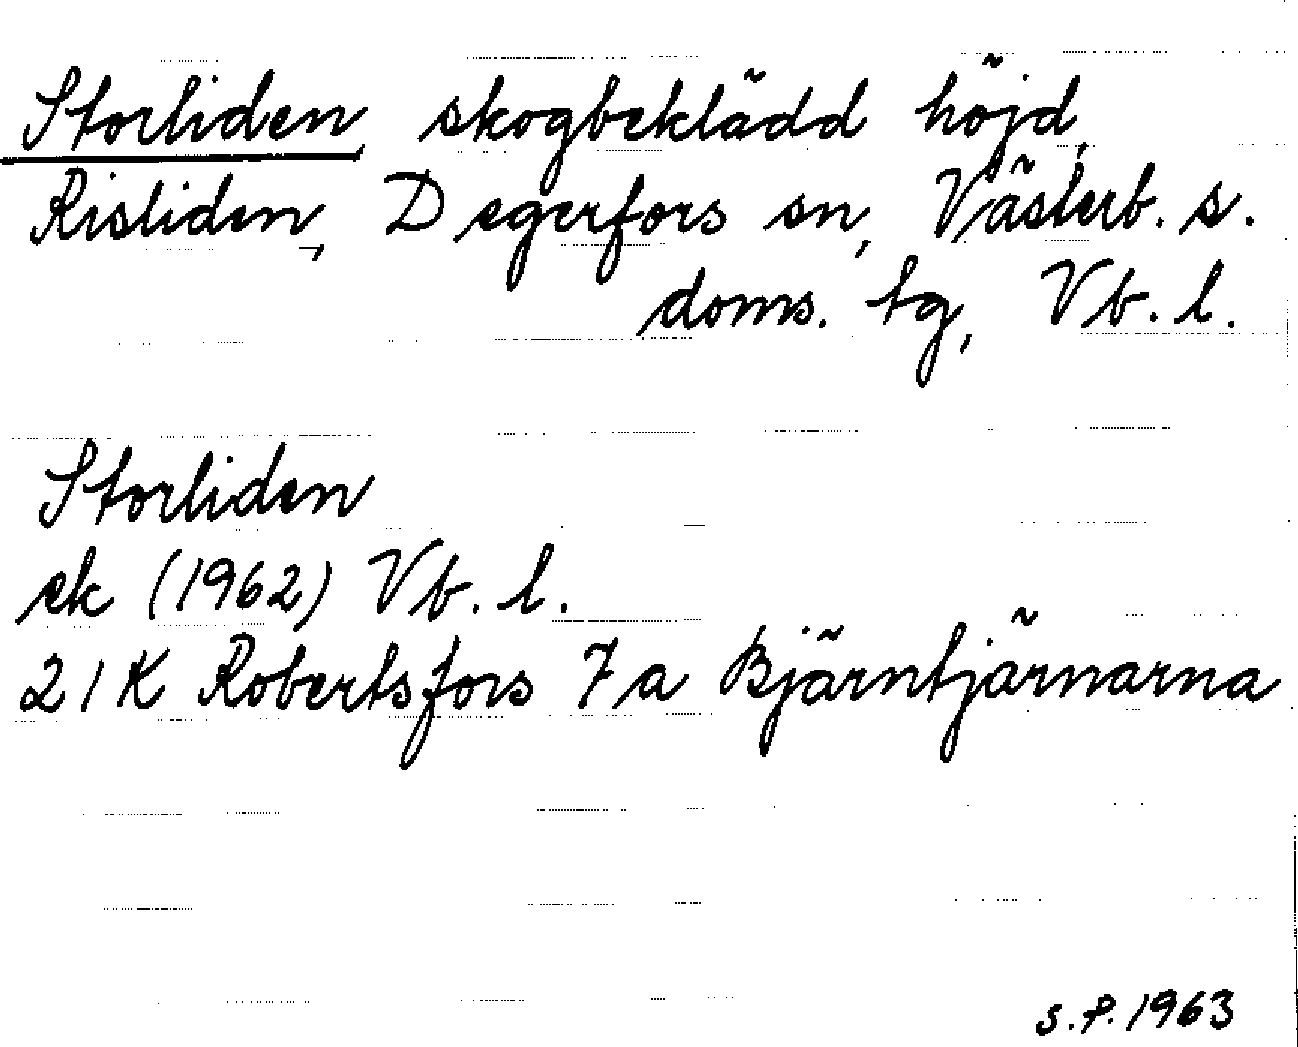 Storliden, skogbeklädd höjd,
Risliden, Degerfors sn, Västerb. s.
doms. tg, Vb. l.
Storliden
ek (1962) Vb. l.
21K Robertsfors 7a Bjärntjärnarna
S.P. 1963